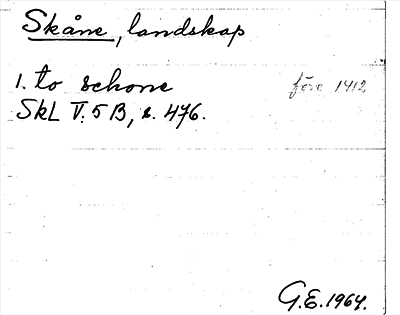 Skåne, landskap
1. to schone före 1412
SkL V:5B, s. 476.
G.E. 1964.